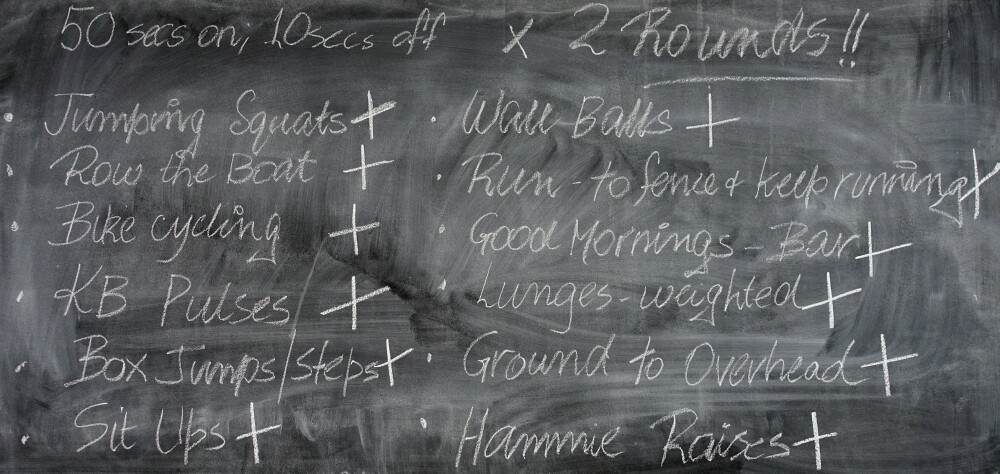 50 secs on, 10 secs off x 2 Rounds!!
• Jumping Squats +
• Row the Boat +
• Bike cycling +
• KB Pulses +
• Box Jumps/Steps +
• Sit Ups +
• Wall Balls +
• Run - to fence & keep running +
• Good Mornings - Bar +
• Lunges - weighted +
• Ground to Overhead +
• Hammie Raises +